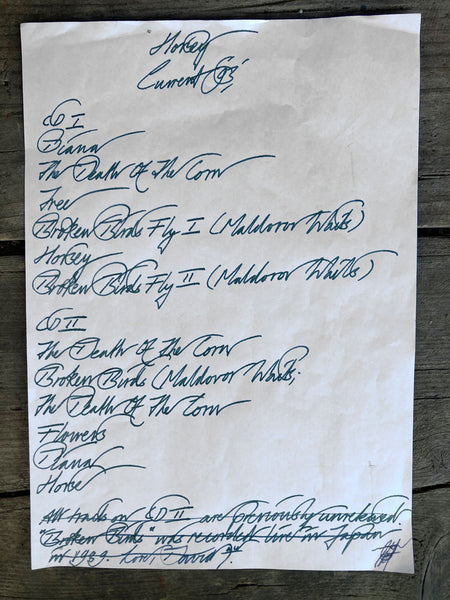 Horsey
Current 93
CD I
Diana
The Death Of The Corn
Tree
Broken Birds Fly I (Maldoror Waits)
Horsey
Broken Birds Fly II (Maldoror Waits)
CD II
The Death Of The Corn
Broken Birds (Maldoror Waits;
The Death Of The Corn
Flowers
Diana
Horse
All tracks on CD II are previously unreleased.
"Broken Birds" was recorded live in Japan
in 1989. Love, David